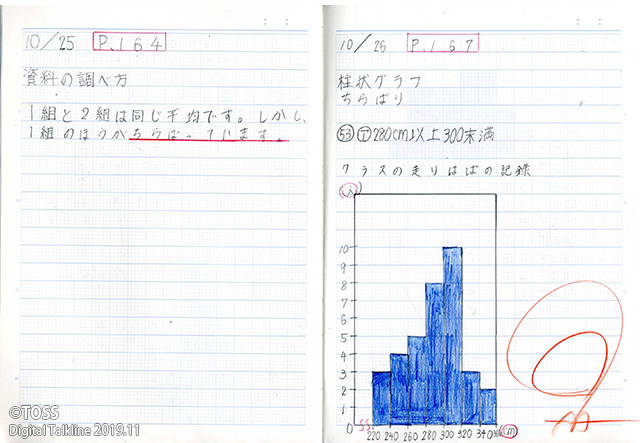 10/25 P.164
資料の調べ方
1組と2組は同じ平均です。しかし、
1組のほうがちらばっています。
10/26 P.167
柱状グラフ
ちらばり
53 ア 280cm以上300未満
クラスの走りはばの記録
(人)
10
9
8
7
6
5
4
3
2
1
0
220 240 260 280 300 320 340 (cm)
©TOSS
Digital Talkline 2019.11